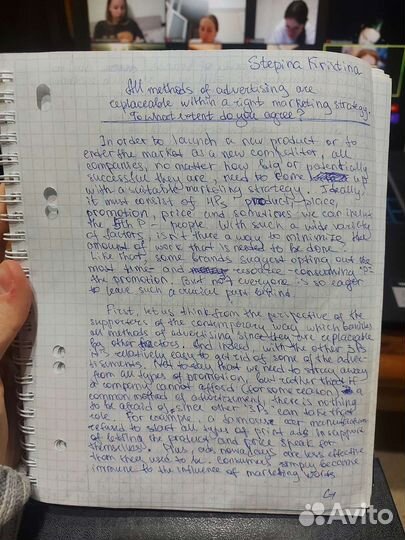 Stepina Kristina
All methods of advertising are
replaceable within a right marketing strategy.
To what extent do you agree?
In order to launch a new product or to
enter the market as a new competitor, all
companies, no matter how big or potentially
successful they are, need to come up
with a suitable marketing strategy. Ideally,
it must consist of 4Ps - product, place,
promotion, price and sometimes we can include
the fifth P - people. With such a wide variety
of factors, is there a way to minimize the
amount of work that is needed to be done?
Like that, some brands suggest opting out the
most time- and resource-consuming "P" -
the promotion. But not everyone is so eager
to leave such a crucial part behind.
First, let us think from the perspective of the
supporters of the contemporary way which banishes
all methods of advertising since they are replaceable
by other factors. And indeed, with the other 3Ps
it's relatively easy to get rid of some of the adver-
tisements. Not to say that we need to stray away
from all types of promotion, but rather that if
a company cannot afford (for some reason) a
common method of advertisement, there is nothing
to be afraid of, since other "3Ps" can take that
role. For example, a famous car manufacturer
refused to start all types of print ads in support
of letting the product and price speak for
themselves. Plus, ads nowadays are less effective
than they used to be. Consumers simply became
immune to the influence of marketing
Avito